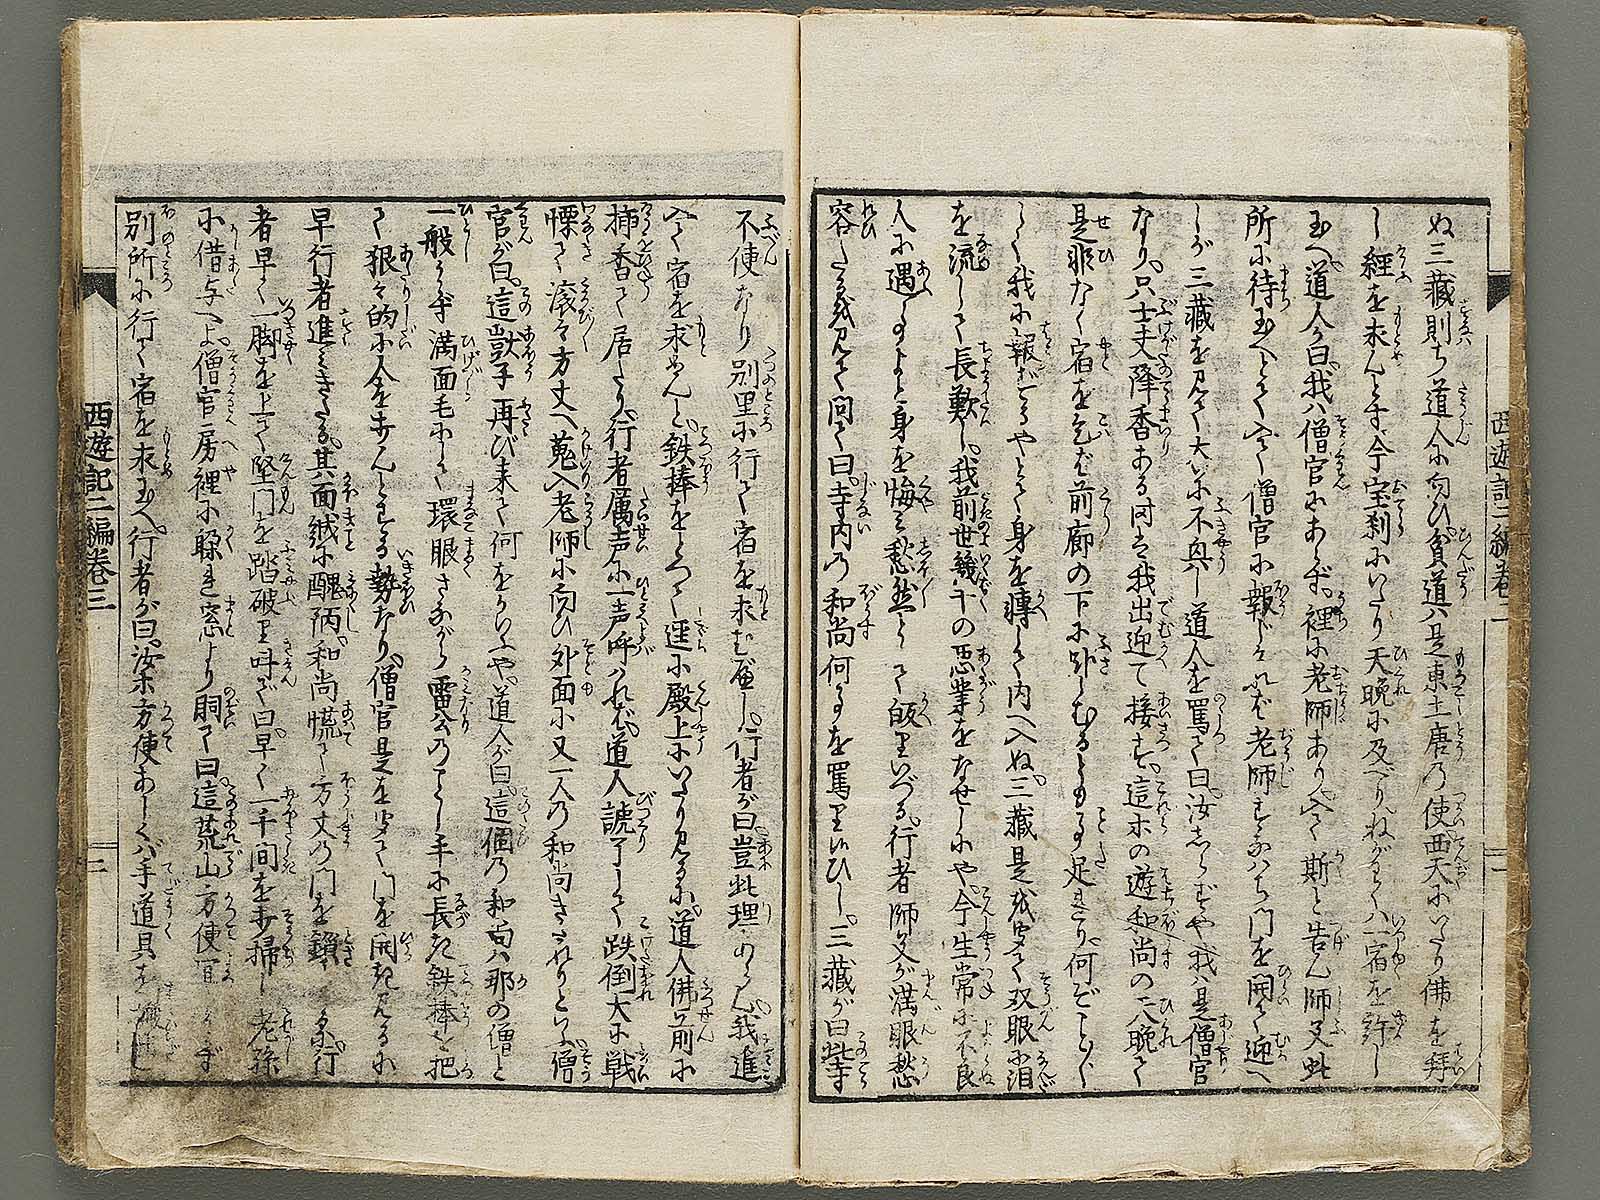 ぬ三藏則ち道人に向ひ貧道ハ是東土唐の使西天にいたり佛を拜
し經を求んとす今宝刹にいたり天晩に及べりねがハくハ宿を許し
玉へ道人が曰我ハ僧官にあらず裡に老師あり入て斯と告ん師父此
所に待玉へとて入て僧官に報じけれバ老師すなハち門を開て迎へ
しが三藏を見て大いに不興し道人を罵て曰汝しらずや我ハ是僧官
なり只士丈降香ある時こそ我出迎て接す這ホの遊和尚の天晩て
是非なく宿を乞バ前廊の下に臥しむるとも事足れり何ぞことごと
しく我に報ずるやとて身を轉して内へ入ぬ三藏是を聞て双眼に泪
を流して長歎し我前世幾千の悪業をなせしにや今生常に不良
人に遇事よと身を悔ミ愁然として皈りいづる行者師父が満眼愁
容たるを見て問て曰寺内の和尚何事を罵りいひし三藏が曰此寺
不便なり別里に行て宿を求むべし行者が曰豈此理あらん我進
入て宿を求めんと鉄棒をとつて逕に殿上にいたり見るに道人佛前に
挿香て居たり行者厲声に一声呼ハれバ道人諕了して跌倒大に戦
慄て滾々方丈へ蒐入老師に向ひ外面に又一人の和尚きたれりといふ僧
官が曰這獃子再び来て何をかいふや道人が曰這個の和尚ハ那の僧と
一般ならず満面毛にして環眼さながら雷公のごとし手に長き鉄棒を把
て狠々的に人を打んとする勢なり僧官是を聞て門を開き見るに
早行者進ミきたる其面絨に醜陋和尚慌て方丈の門を鎖す行
者早く一脚を上て堅門を踏破り叫で曰早く一千間を打掃し老孫
に借与へよ僧官房裡に躱れ窓より胴て曰這荒山方便宜からず
別所に行て宿を求玉へ行者が曰汝ホ方便あしくバ手道具を
西遊記二編巻三